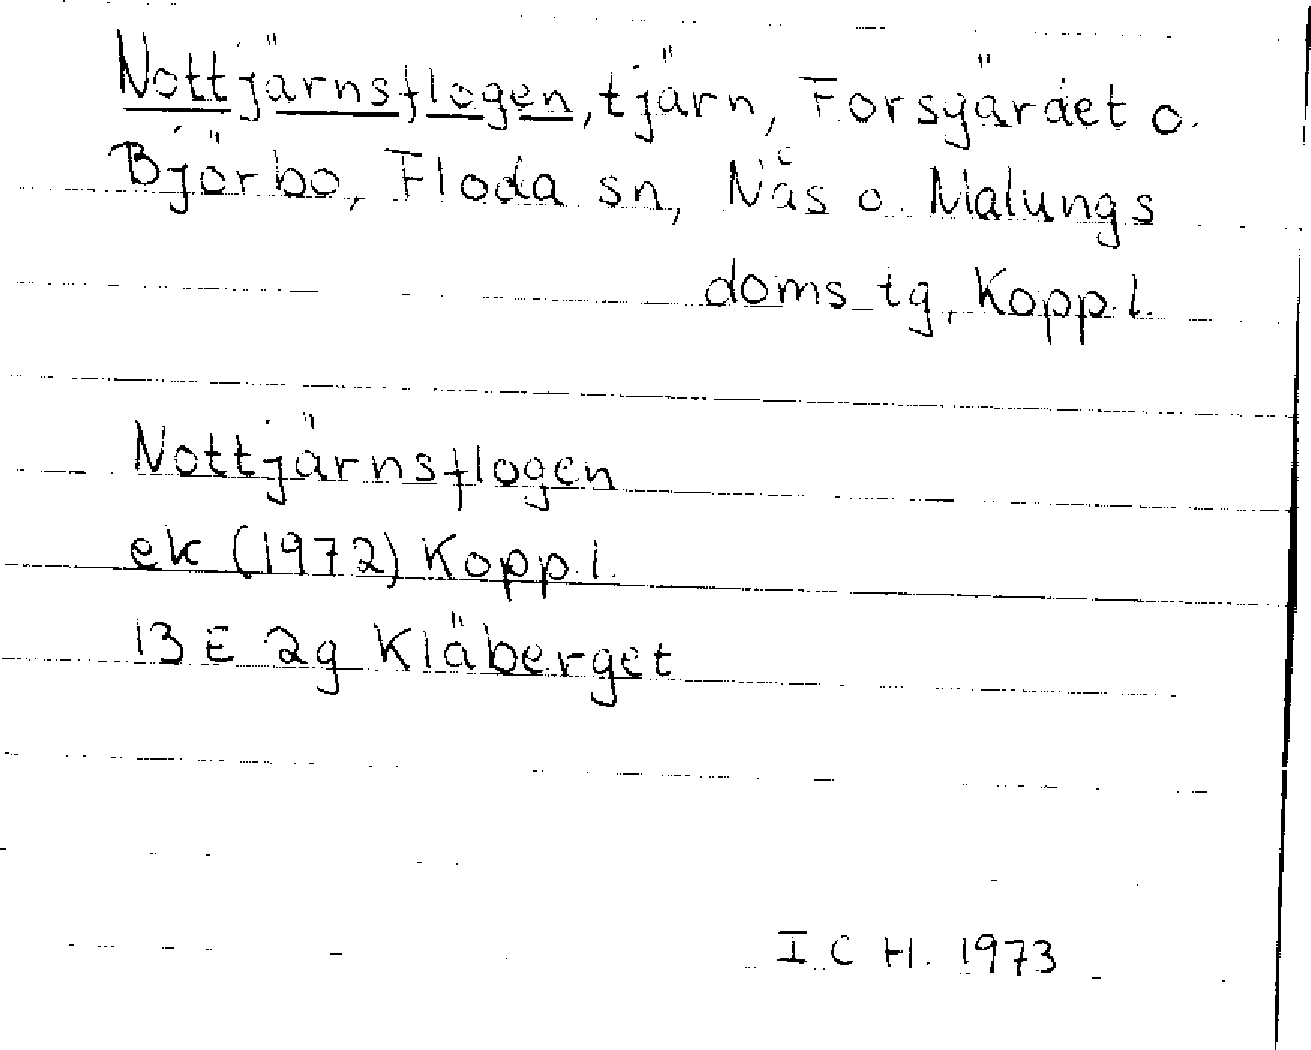 Nottjärnsflogen, tjärn, Forsgärdet o.
Björbo, Floda sn, Nås o. Malungs
doms tg, Kopp.l.
Nottjärnsflogen
ek (1972) Kopp.l.
13 E 2g Kläberget
I.C H. 1973